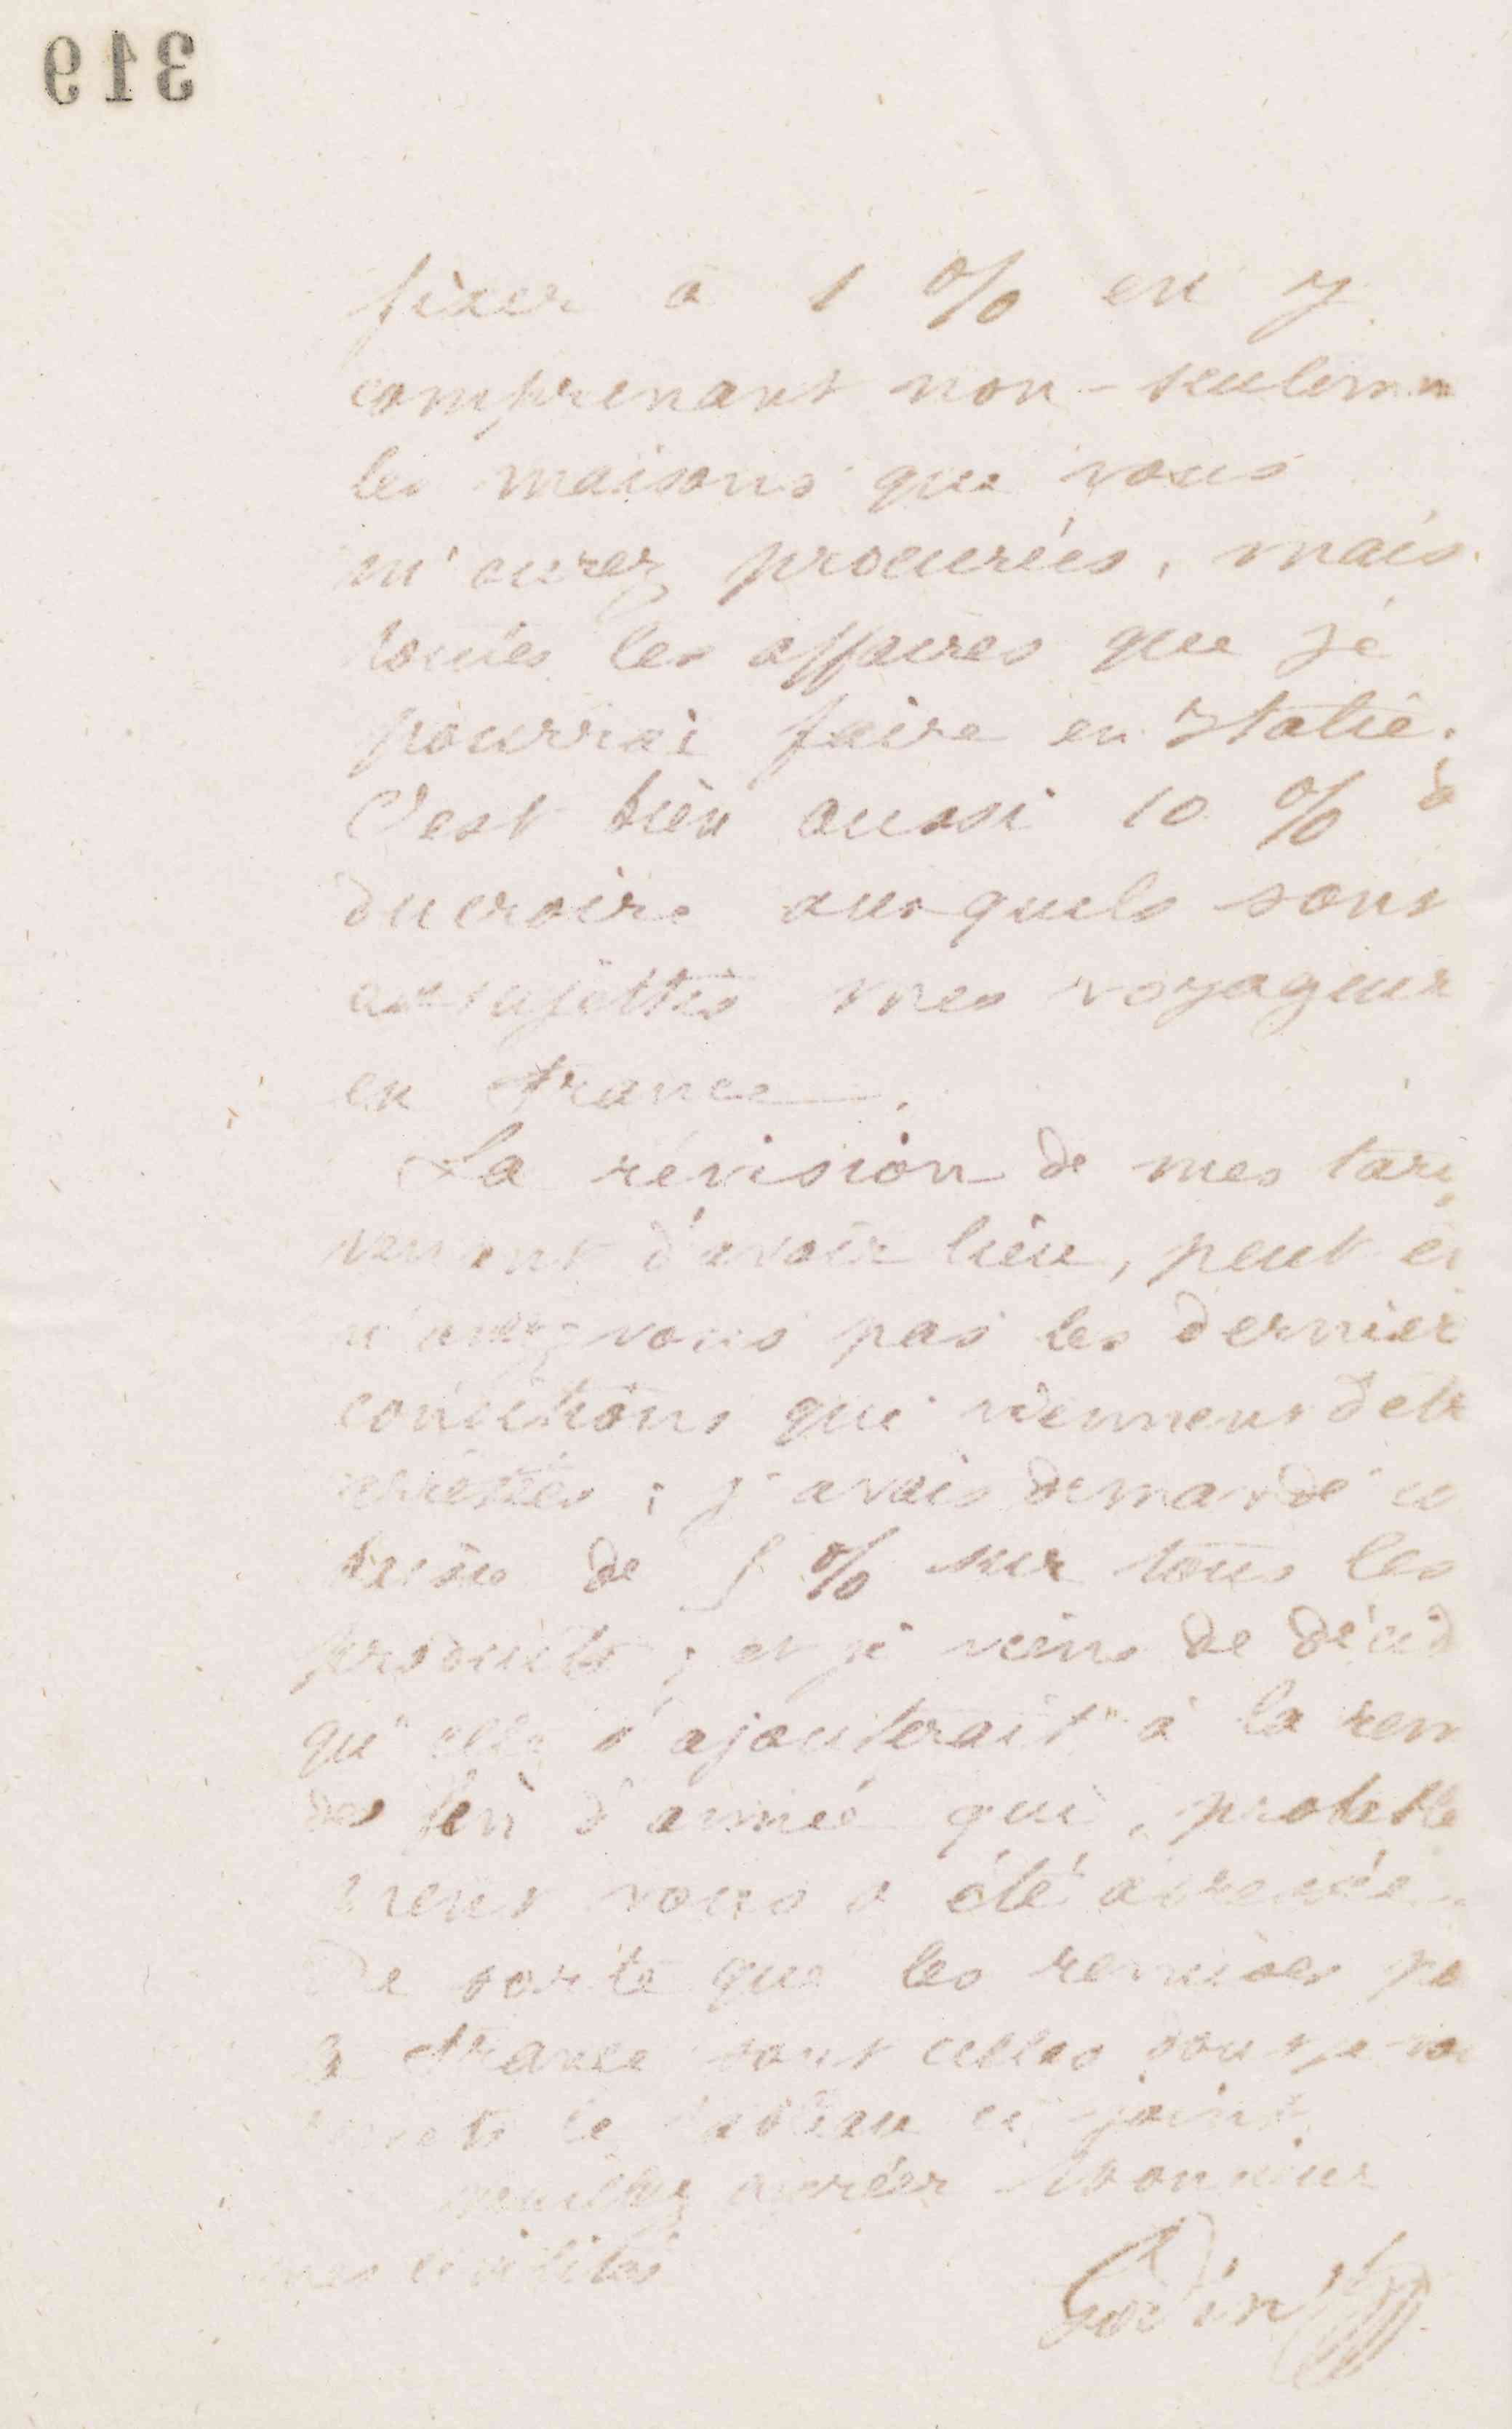 319
fixer à 1 % en y
comprenant non-seulem
les maisons que vous
m'aurez procurées, mais
toutes les affaires que je
pourrai faire en Italie.
C'est bien aussi 10 % à
ducroire auxquels sont
assujettis mes voyageur
en France.
La révision de mes tari
venant d'avoir lieu, peut
n'avez-vous pas les dernier
conditions qui viennent d'etr
arrêtées ; j'avais demandé
de 5 % sur tous les
produits ; et je viens de décid
qu'elle s'ajouterait à la rem
de fin d'année qui, probable
ment vous a été
De sorte que les remises po
la France sont celles dont je vo
remets le tableau ci-joint.
Veuillez agréer Monsieur
mes civilités
Godin